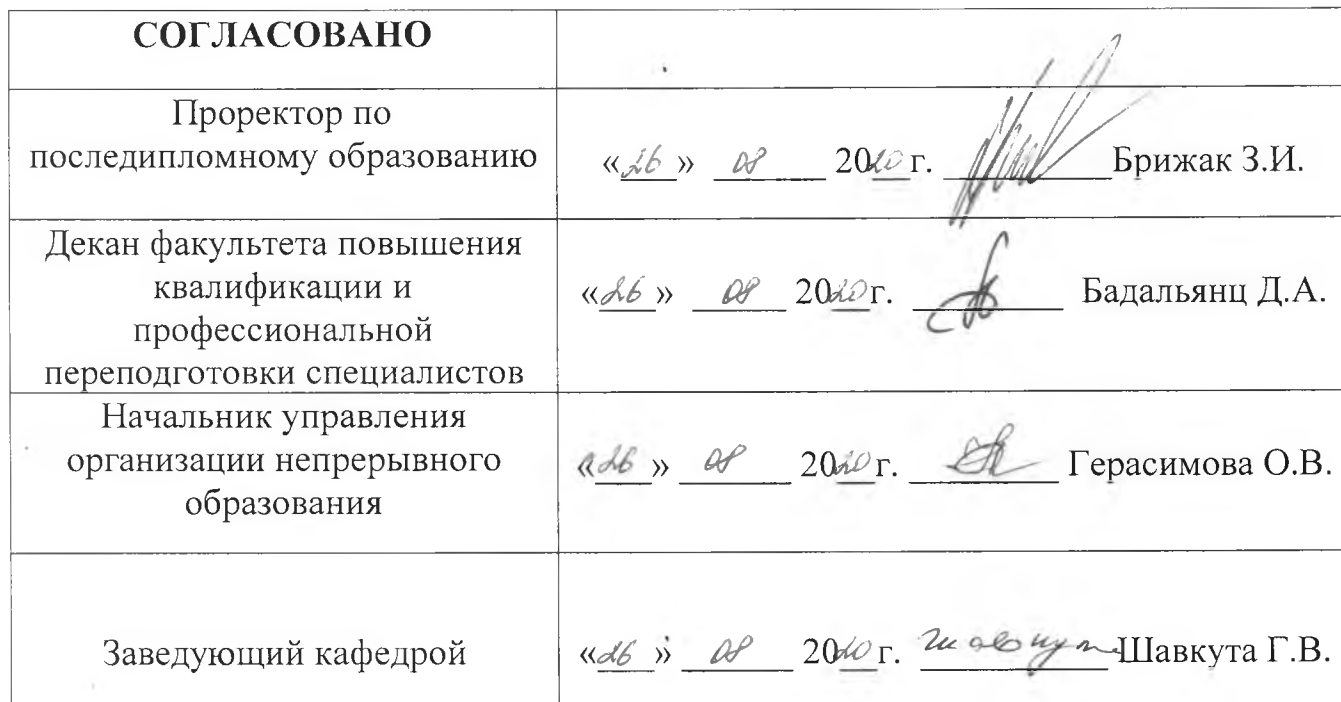 СОГЛАСОВАНО
Проректор по
последипломному образованию
«26» 08 2020 г. Брижак З.И.
Декан факультета повышения
квалификации и
профессиональной
переподготовки специалистов
«26» 08 2020 г. Бадальянц Д.А.
Начальник управления
организации непрерывного
образования
«26» 08 2020 г. Герасимова О.В.
Заведующий кафедрой
«26» 08 2020 г. Шавкута Г.В.